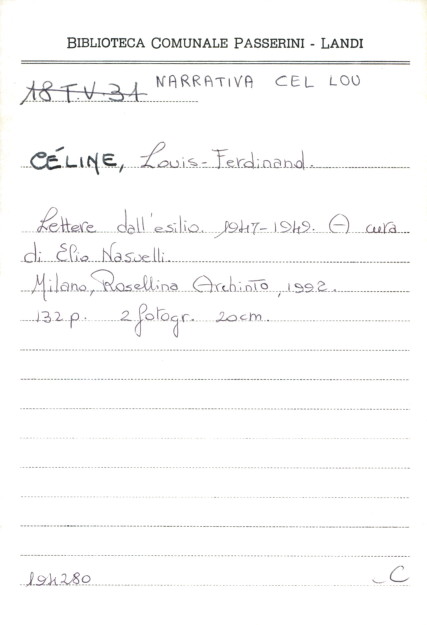 BIBLIOTECA COMUNALE PASSERINI - LANDI
18 T.V.31 NARRATIVA CEL LOU
CÉLINE, Louis-Ferdinand.
Lettere dall'esilio. 1947-1949. A cura
di Elio Nasuelli.
Milano, Rosellina Archinto, 1992.
132 p. 2 fotogr. 20cm.
194280 C